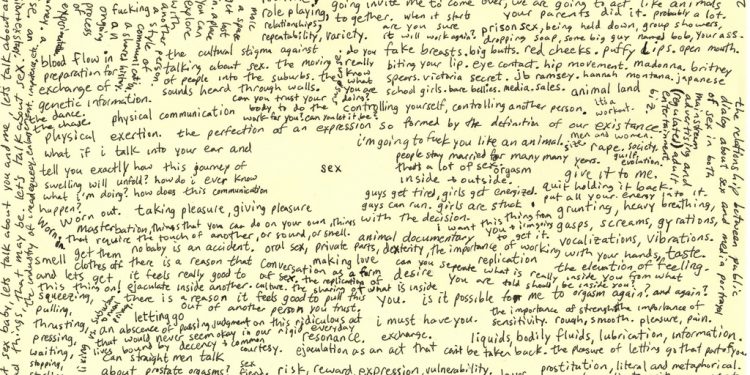 going invite me to come over, we are going to act like animals
role playing, together. when it starts your parents did it. probably a lot.
relationships, are you sure prison sex, being held down, group showers,
repeatability, variety. it will work again? dropping soap, some big guy named bob, your ass.
the cultural stigma against do you fake breasts. big butts. red cheeks. puffy lips. open mouth.
blood flow in talking about sex. the moving really biting your lip. eye contact. hip movement. madonna. britney
preparation for of people into the suburbs. the know spears. victoria secret. jb ramsey. hannah montana. japanese
exchange of sounds heard through walls. what you are doing? school girls. bare bellies. media. sales. animal land
genetic information. can you trust your
the dance. physical communication body to do the controlling yourself, controlling another person. it's a workout.
the chase. work for you? can you let it be?
physical exertion. the perfection of an expression so formed by the definition of our existance. men and women.
what if i talk into your ear and i'm going to fuck you like an animal. rape. society.
people stay married for many many years. guilt evolution.
tell you exactly how this journey of sex that's a lot of sex orgasm give it to me.
swelling will unfold? how do i ever know inside + outside.
what i'm doing? how does this communication guys get tired, girls get energized. quit holding it back.
happen? guys can run. girls are stuck put all your energy into it.
worn out. taking pleasure, giving pleasure with the decision. grunting, heavy breathing,
masterbation, things that you can do on your own, things i want this thing from gasps, screams, gyrations,
that require the touch of another, or sound, or smell. you + i'm going to get it. vocalizations, vibrations.
smell no baby is an accident. oral sex, private parts, dexterity, the importance of working with your hands, taste.
get them clothes off there is a reason that making love replication the elevation of feeling.
and lets get it feels really good to conversation as a form of sex, the replication of desire can you seperate what is really inside you from what you are told should be inside you?
this thing on! ejaculate inside another. culture. the sharing of what is inside
squeezing, there is a reason it feels good to pull this you. is it possible for me to orgasm again? and again?
pulling. out of another person you trust, the importance of strength the importance of
thrusting, letting go i must have you. sensitivity. rough, smooth. pleasure, pain.
pressing, an absence of passing judgment on this ridiculous act
waiting, that would never seem okay in our rigid everyday resonance. exchange. liquids, bodily fluids, lubrication, information.
stopping, lives bound by decency + common courtesy. ejaculation as an act that can't be taken back. the pleasure of letting go that part of you
can straight men talk
about prostate orgasms? sex risk, reward, expression, vulnerability. lover prostitution, literal and metaphorical.
the relationship between public
dialog about sex and media portrayal
of sex in both
mainstream
advertising and
(regulated) adult
entertainment.
lets talk about sex baby, lets talk about you and me lets talk about all